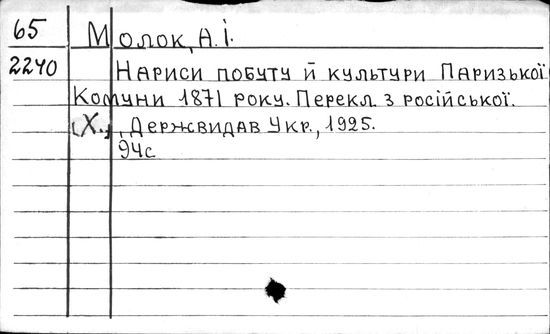 65 Молок, А.І.
2240 Нариси побуту й культури Паризької
Комуни 1871 року. Перекл. з російської.
[Х.], Держвидав Укр., 1925.
94с